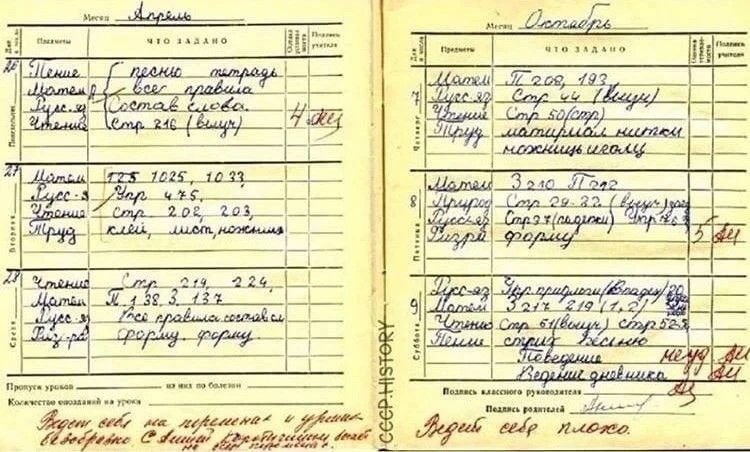 Месяц Апрель
Дни и числа Предметы ЧТО ЗАДАНО Оценка успеваемости Подпись учителя
26 Понедельник
Пение песню тетрадь
Матем все правила
Русс-яз Состав слова
Чтение Стр 216 (выуч) 4
27 Вторник
Матем 125 1025, 1033
Русс-я Упр 475,
Чтение Стр. 202, 203,
Труд клей, лист, ножницы
28 Среда
Чтение Стр 219, 224,
Матем П. 138 З. 137
Русс-яз все правила состав сл
Физ-ра форму. форму.
Пропуск уроков из них по болезни
Количество опозданий на уроки
Ведет себя на переменах и уроках
безобразно С Аншай
на всех переменах.
Месяц Октябрь
Дни и числа Предметы ЧТО ЗАДАНО Оценка успеваемости Подпись учителя
7 Четверг
Матем П 208, 193,
Русс-яз Стр 44 (выуч)
Чтение Стр 50 (стр)
Труд матириал нитки
ножницы иголц
8 Пятница
Матем З 210 П 212
Природ Стр 29-32 (выуч)
Русс-яз Стр 37 (падежи) Упр 763
Физра форму 5
9 Суббота
Русс-яз Упр придлоги (Впадеж) 20
Матем З 217 219 (1,2)
Чтение Стр 51 (выуч) стр 52-
Пение стрих песню
Поведение неуд.
Ведение дневника
Подпись классного руководителя
Подпись родителей
Ведет себя плохо.
CCCP.HISTORY